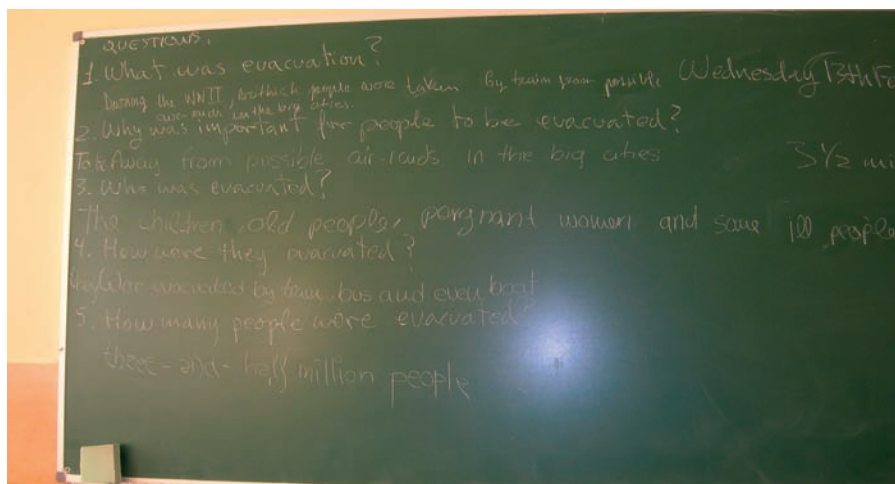 QUESTIONS.
1. What was evacuation?
During the WWII, people were taken by train from possible
air-raids in the big cities.
Wednesday 13th Fe
2. Why was important for people to be evacuated?
Take Away from possible air-raids in the big cities
3 1/2 mi
3. Who was evacuated?
The children, old people, pargnant women and some ill people
4. How were they evacuated?
evacuated by train, bus and even boat
5. How many people were evacuated?
three-and-half million people